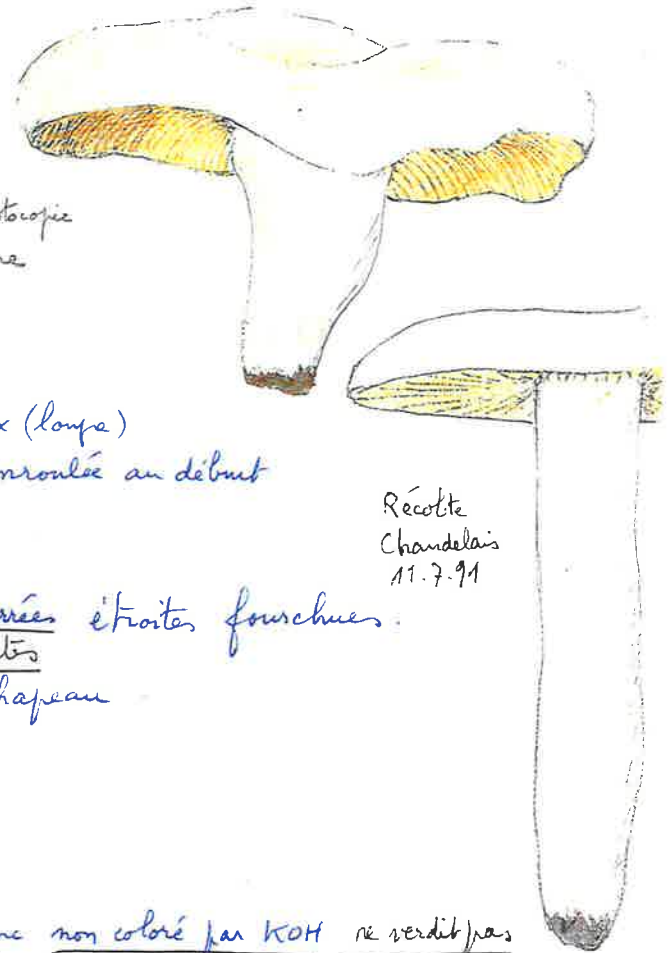 tocopie
re
x (loupe)
nroulée au début
Récolte
Chandelais
11.7.91
rrées étroites fourchues.
tès
hapeau
ne non coloré par KOH ne verdit pas